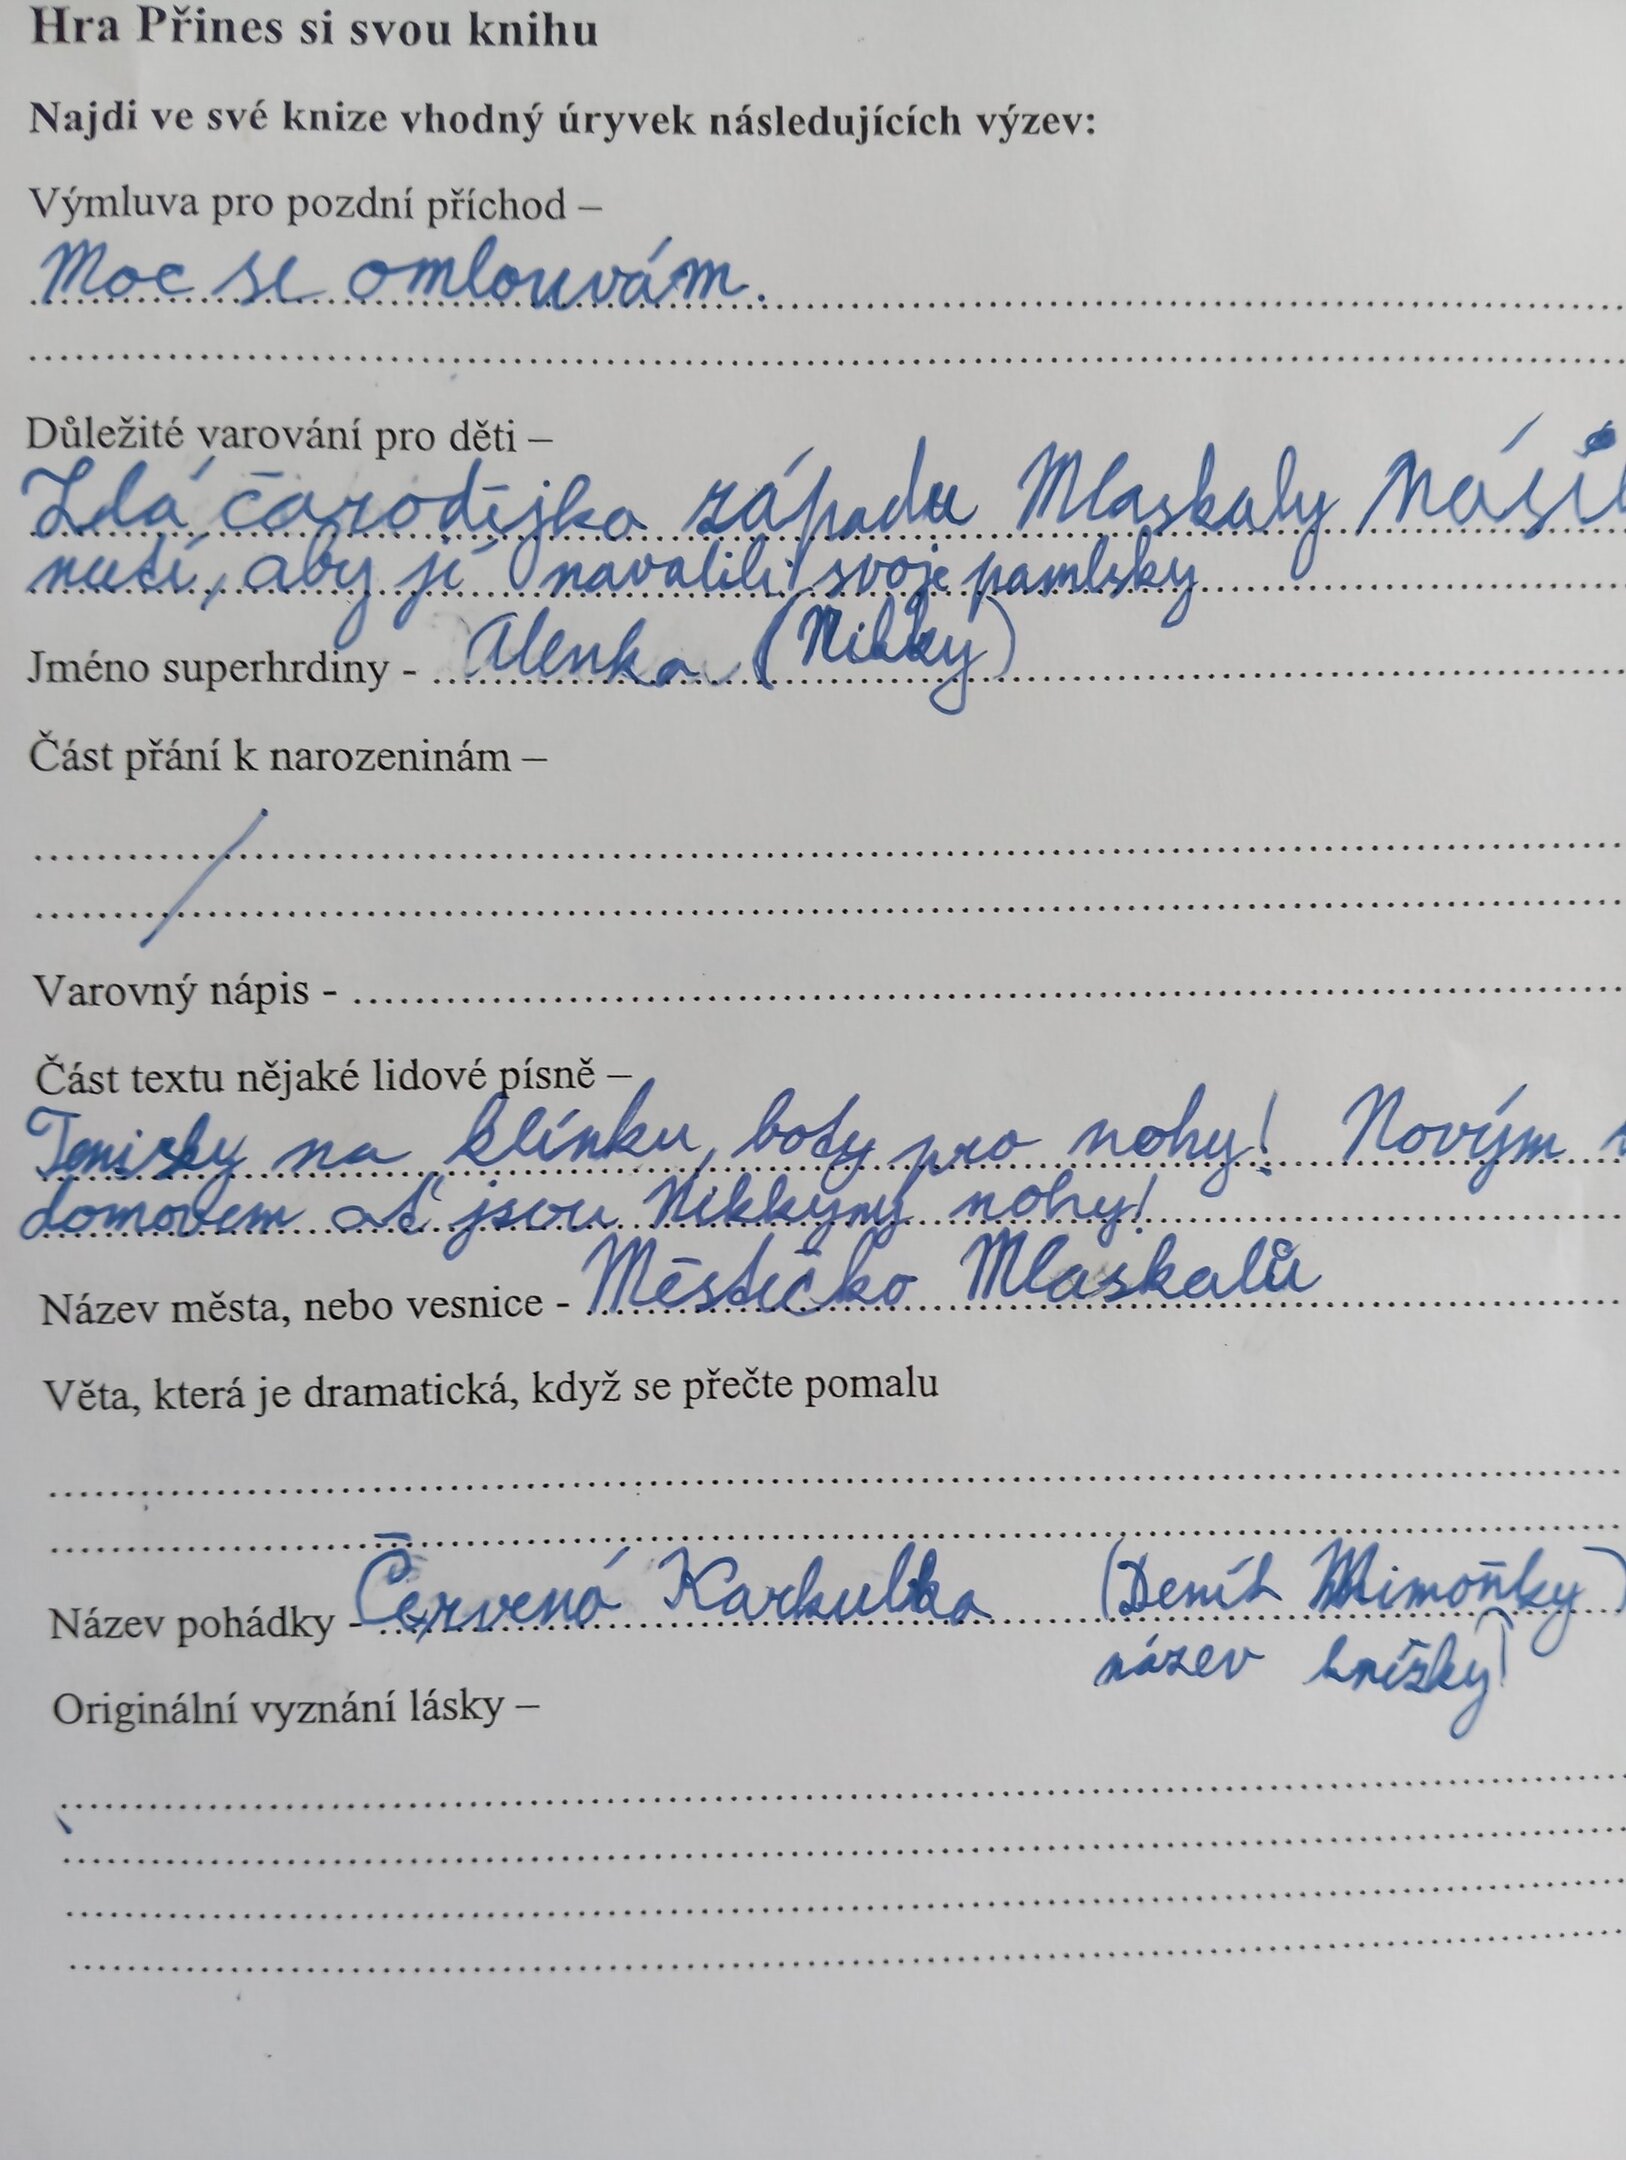 Hra Přines si svou knihu
Najdi ve své knize vhodný úryvek následujících výzev:
Výmluva pro pozdní příchod –
Moc se omlouvám.
Důležité varování pro děti –
Zlá čarodějka západu Mlaskaly
nutí, aby jí navalili svoje pamlsky
Jméno superhrdiny - Alenka (Nikky)
Část přání k narozeninám –
Varovný nápis -
Část textu nějaké lidové písně –
Tenisky na klínku, boty pro nohy! Novým
domovem ať jsou Nikkyny nohy!
Název města, nebo vesnice - Městečko Mlaskalů
Věta, která je dramatická, když se přečte pomalu
Název pohádky - Červená Karkulka (Deník Mimoňky)
název knížky)
Originální vyznání lásky –